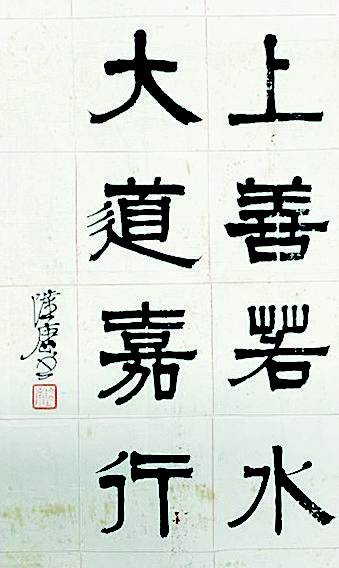 上善若水
大道嘉行